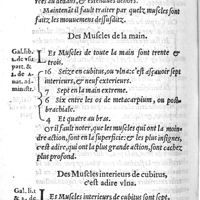 res au dedans, & estendues dehors.
Maintenāt il fault traiter par quelz muscles sont
faitz les mouuemens dessusditz.
Des Muscles de la main.
Gal. lib.
1. de vsu
part. &
2. de a-
nat. ad-
ministr.
LEs Muscles de toute la main sont trente &
trois.
16 Seize en cubitus, ou vlna: c'est asçauoir sept
interieurs, & neuf exterieurs.
7 Sept en la main extreme.
6 Six entre les os de metacarpium, ou post-
brachiale.
4 Et quatre au bras.
Il fault noter, que les muscles qui ont la moin-
dre action, sont en la superficie: & les plus insignes,
cest adire, qui ont la plus grande action, sont cachez
plus profond.
Des Muscles interieurs de cubitus,
c'est adire vlna.
Gal. li. 1
& 2. de
LEs Muscles interieurs de cubitus sont sept,